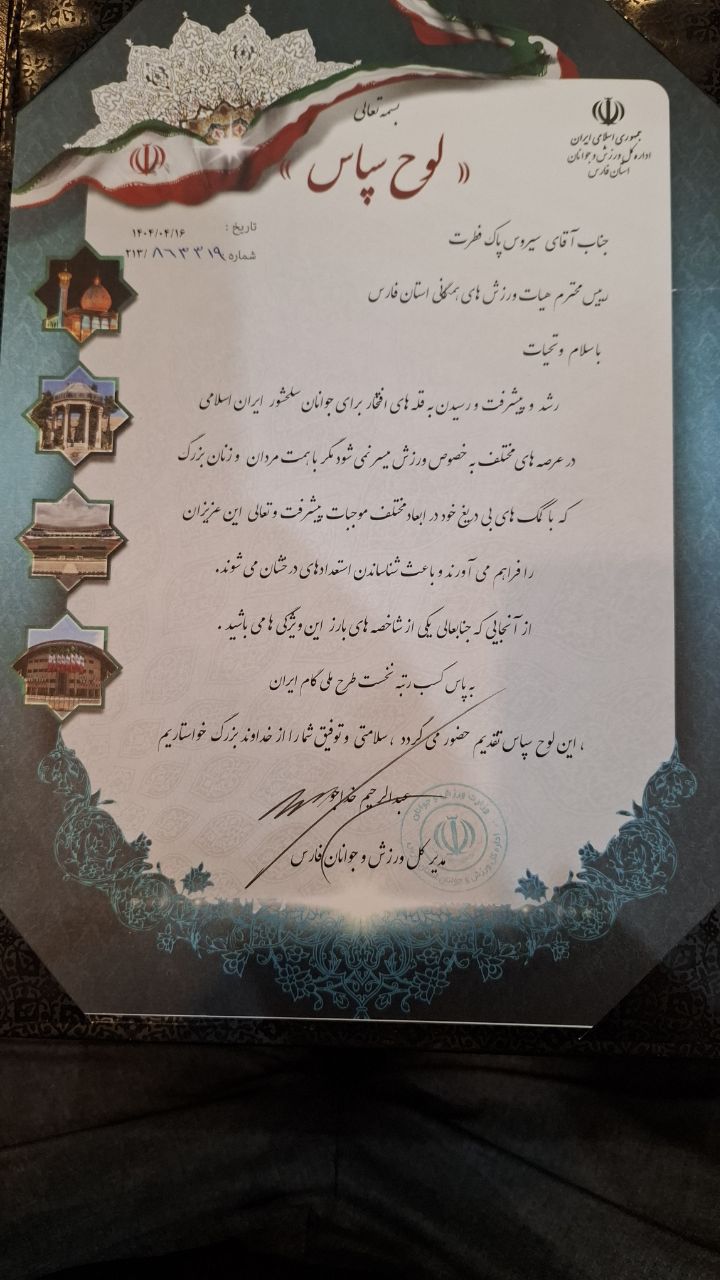 بسمه تعالی
« لوح سپاس »
جمهوری اسلامی ایران
اداره کل ورزش و جوانان
استان فارس
تاریخ : ۱۴۰۴/۰۴/۱۶
شماره ۲۱۳/ ۸۶۳۳۱۹
جناب آقای سیروس پاک فطرت
رییس محترم هیات ورزش های همگانی استان فارس
با سلام و تحیات
رشد و پیشرفت و رسیدن به قله های افتخار برای جوانان سلحشور ایران اسلامی
در عرصه های مختلف به خصوص ورزش میسر نمی شود مگر با همت مردان و زنان بزرگ
که با کمک های بی دریغ خود در ابعاد مختلف موجبات پیشرفت و تعالی این عزیزان
را فراهم می آورند و باعث شناساندن استعدادهای درخشان می شوند.
از آنجایی که جنابعالی یکی از شاخصه های بارز این ویژگی ها می باشید .
به پاس کسب رتبه نخست طرح ملی گام ایران
، این لوح سپاس تقدیم حضور می گردد ، سلامتی و توفیق شما را از خداوند بزرگ خواستاریم
عبدالرحیم
مدیر کل ورزش و جوانان فارس
وزارت ورزش و جوانان